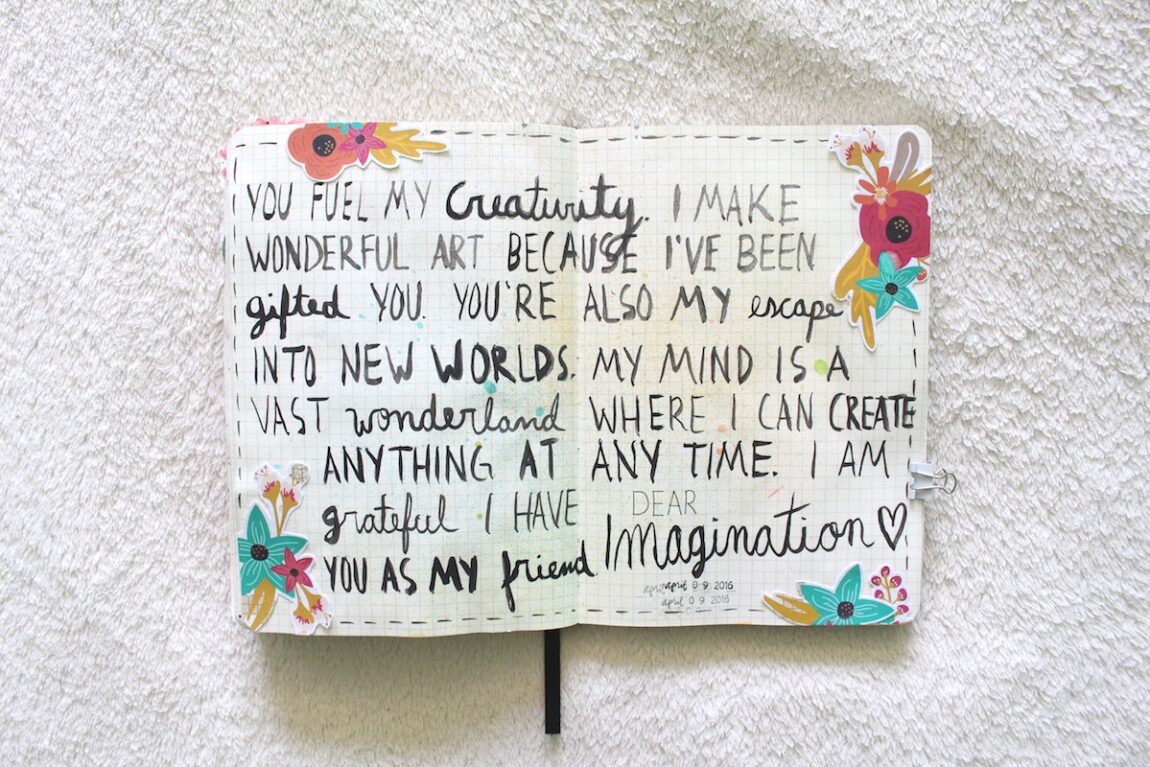 YOU FUEL MY Creativity. I MAKE
WONDERFUL ART BECAUSE I'VE BEEN
gifted YOU. YOU'RE ALSO MY escape
INTO NEW WORLDS. MY MIND IS A
VAST wonderland WHERE I CAN CREATE
ANYTHING AT ANY TIME. I AM
grateful I HAVE
YOU AS MY friend
DEAR
Imagination
april 09 2016
april 09 2016